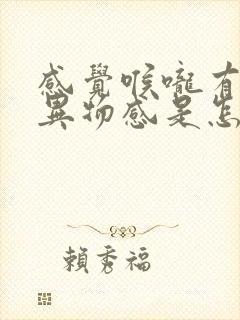 感覺喉嚨有
異物感是怎
賴秀福